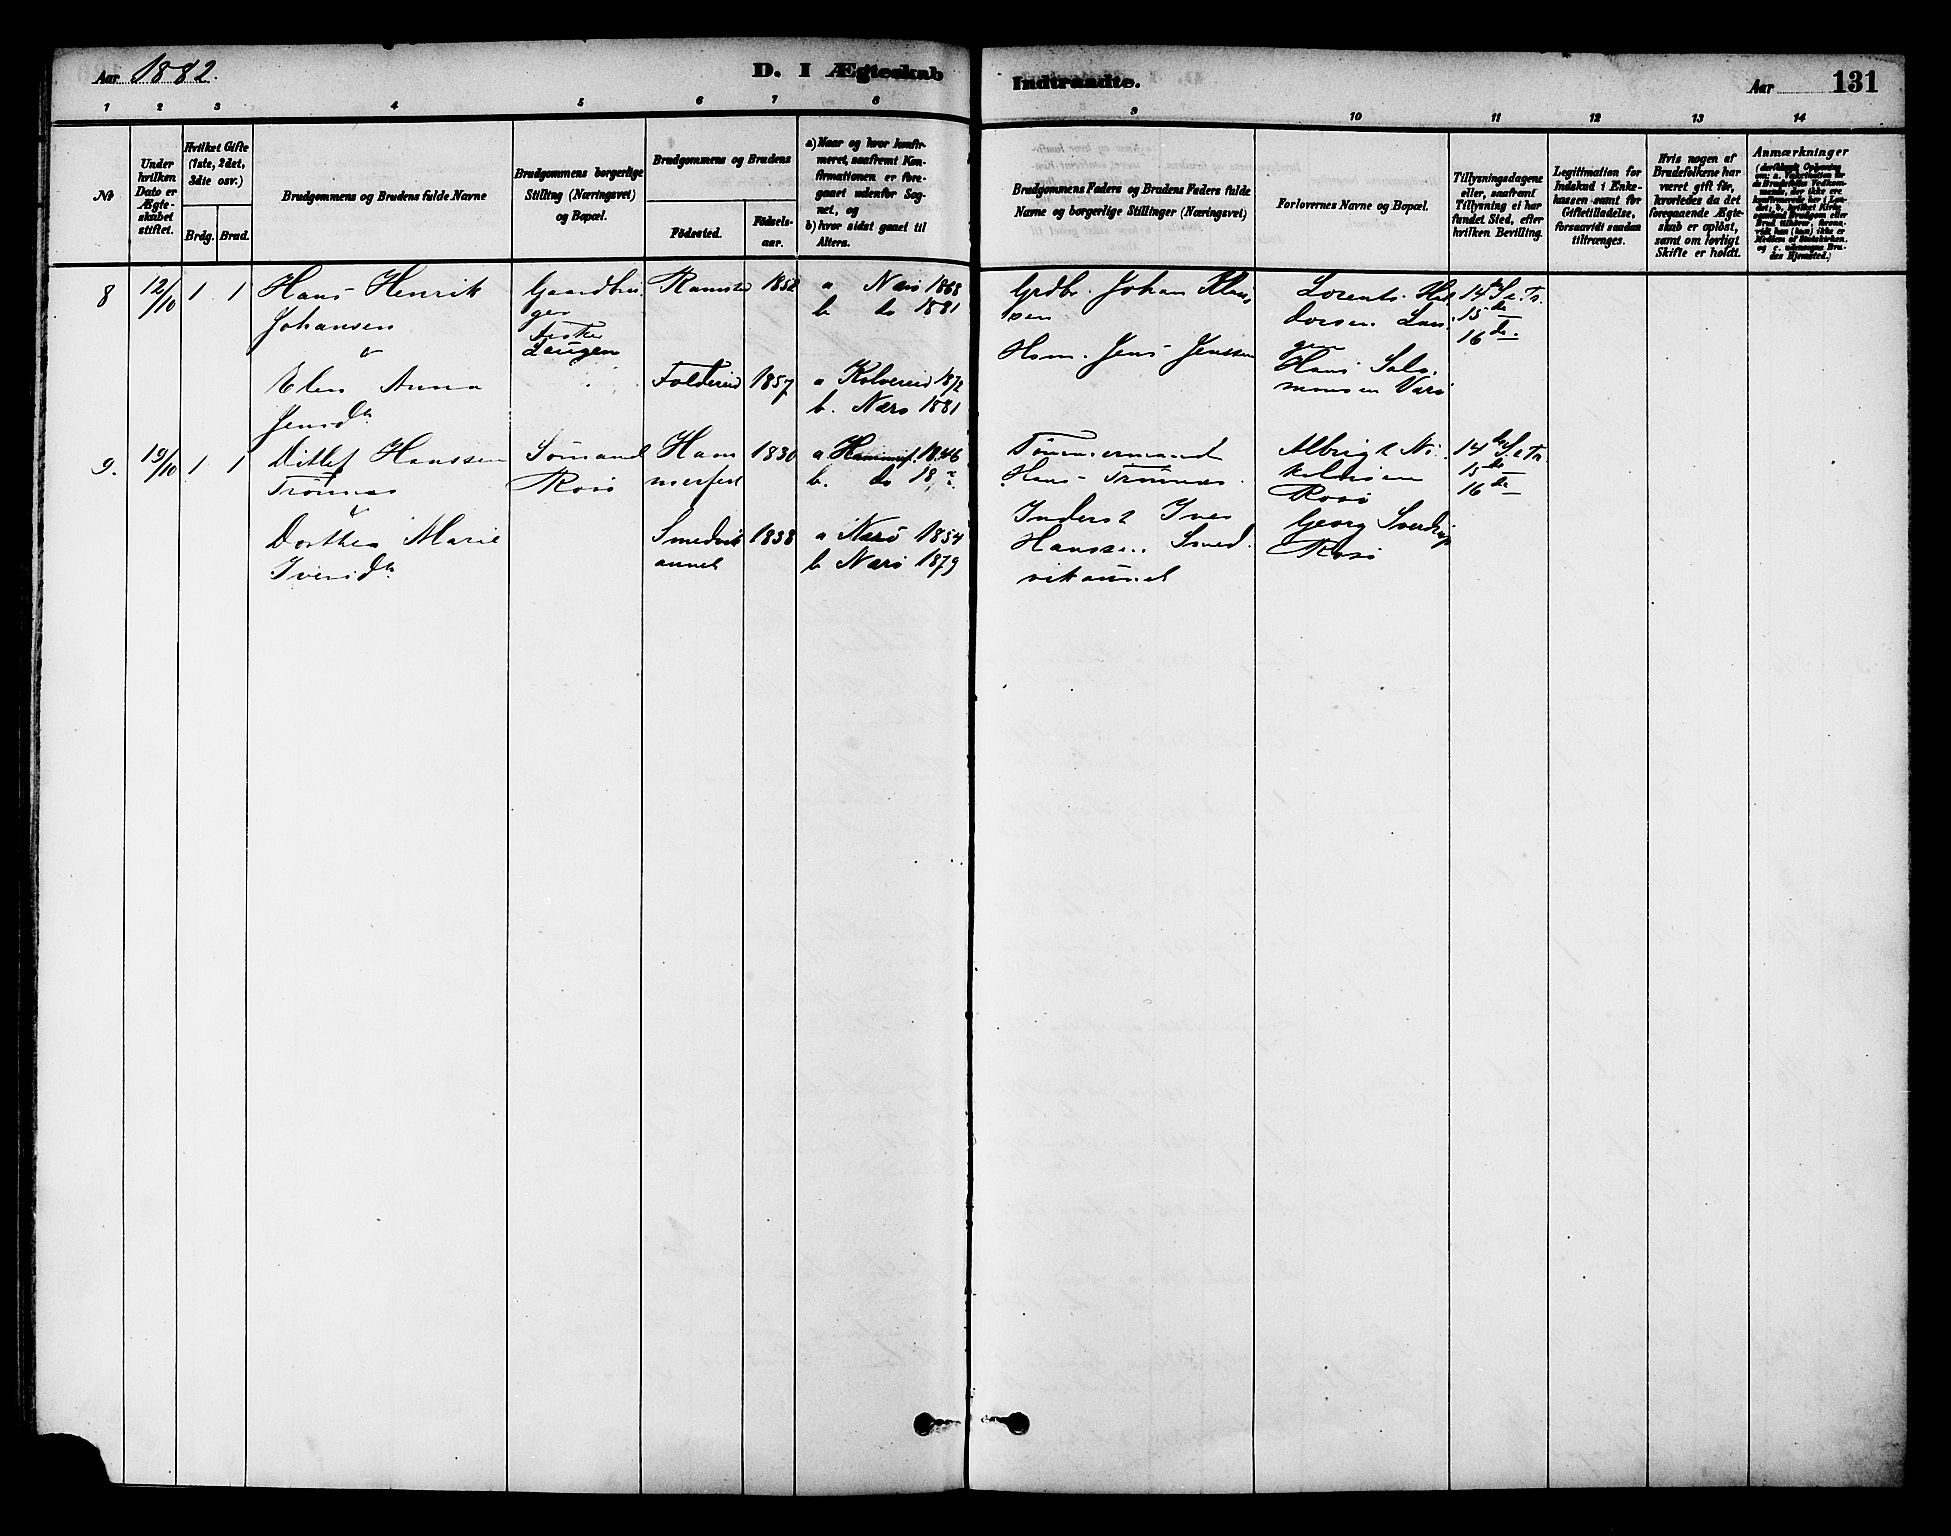 Aar 1882.
D. I Ægteskab
Indtraadte.
Aar
131
1 2 3 4 5 6 7 8 9 10 11 12 13 14
№
Under
hvilken
Dato er
Ægte-
skabet
stiftet.
Hvilket Gifte
(1ste, 2det,
3die osv.)
Brdg. Brud.
Brudgommens og Brudens fulde Navne
Brudgommens borgerlige
Stilling (Næringsvei)
og Bopæl.
Brudgommens og Brudens
Födested.
Födsels-
aar.
a) Naar og hvor konfir-
meret, saafremt Kon-
firmationen er fore-
gaaet udenfor Sog-
net, og
b) hvor sidst gaaet til
Alters.
Brudgommens Faders og Brudens Faders fulde
Navne og borgerlige Stillinger (Næringsvei)
Forlovernes Navne og Bopæl.
Tillysningsdagene
eller, saafremt
Tillysning ei har
fundet Sted, efter
hvilken Bevilling.
Legitimation for
Indskud i Enke-
kassen samt for
Giftetilladelse,
forsaavidt saadan
tiltrænges.
Hvis nogen af
Brudefolkene har
været gift för,
hvorledes da det
foregaaende Ægte-
skab er oplöst,
samt om lovligt
Skifte er holdt.
Anmærkninger
8 12/10 1 1
Hans Henrik
Johansen
&
Elen Anna
Jensdtr
Gaardbru-
ger
Fisker
Laugen
1852
Foldereid 1857
a Nærö 1868
b do 1881
a Kolvereid 1872
b. Nærö 1881
Grdbr. Johan Klau-
sen
Hsm. Jens Jenssen
Lorents Hal-
dorsen Lau-
gen
Hans Salo-
monsen Varö
14de S. e. Tr.
15 de —
16 de —
9. 19/10 1 1
Ditlef Hanssen
Trönnes
&
Dorthea Marie
Iversdtr
Sömand
Rosö
Ham-
merfest
1830
Smedvik-
aunet
1838
a Hammf. 1846
b. do 18
a Nærö 1854
b Nærö 1879
Tömmermand
Hans Trönnes
Inderst Iver
Hanssen Smed-
vikaunet
Albrigt Ni-
kolaisen
Rosö
Georg Sverdrup
Rosö
14de S. e. Tr.
15 de
16 de —